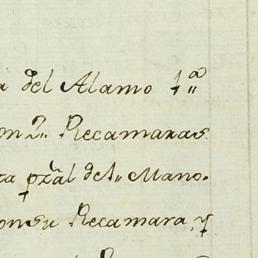 a del Alamo 1ª
on 2.. Recamaras
ta pzāl de 1.. Mano.
onsu Recamara, y